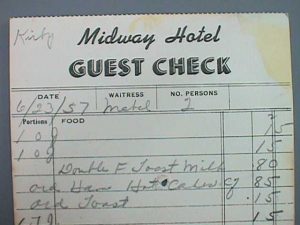 Kirby
Midway Hotel
GUEST CHECK
DATE WAITRESS NO. PERSONS
6/23/57 2
Portions FOOD
.15
.15
Double F Toast Milk .80
ord Ham Hot Cakes .85
ord Toast .15
.15